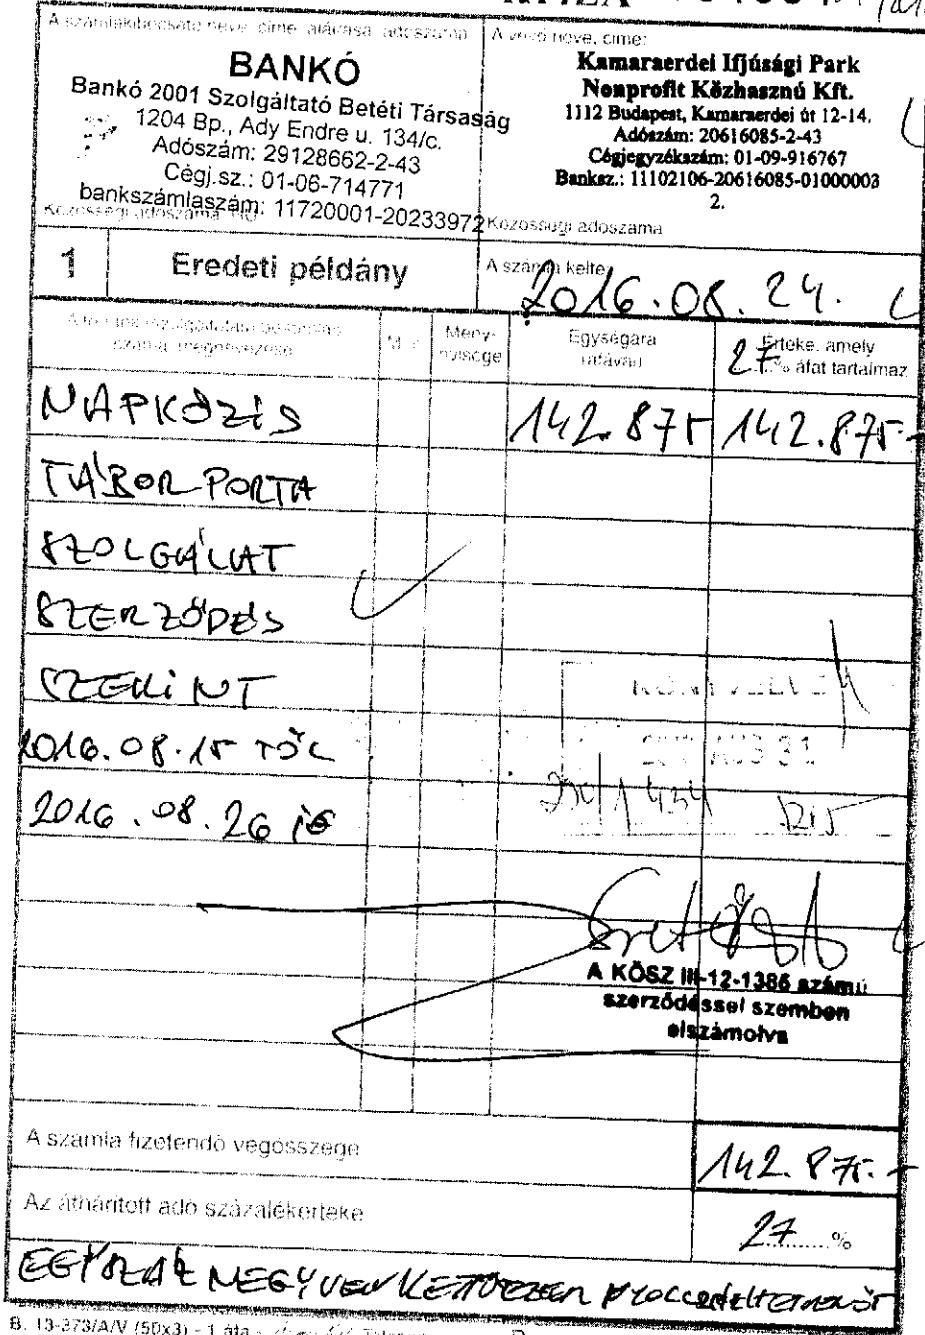 A számlakibocsátó neve, címe, aláírása, adószáma
BANKÓ
Bankó 2001 Szolgáltató Betéti Társaság
1204 Bp., Ady Endre u. 134/c.
Adószám: 29128662-2-43
Cégj.sz.: 01-06-714771
bankszámlaszám: 11720001-20233972
Közösségi adószáma: HU
A vevő neve, címe:
Kamaraerdei Ifjúsági Park
Nonprofit Közhasznú Kft.
1112 Budapest, Kamaraerdei út 12-14.
Adószám: 20616085-2-43
Cégjegyzékszám: 01-09-916767
Banksz.: 11102106-20616085-01000003
2.
Közösségi adószáma
1 Eredeti példány
A számla kelte
2016.08.24.
Meny-nyisége
Egységára
Értéke, amely
27% áfát tartalmaz
NAPKÖZIS 142.875 142.875.-
TÁBOR PORTA
SZOLGÁLAT
SZERZŐDÉS
SZERINT
2016.08.15 TŐL
2016.08.26 IG
KÖNYVELVE
AUG 31
A KÖSZ III-12-1386 számú
szerződéssel szemben
elszámolva
A számla fizetendő végösszege
142.875.-
Az áthárított adó százalékértéke
27 %
EGYSZÁZ NEGYVENKETTŐEZER
B. 13-373/A/V (50x3) - 1 áfa